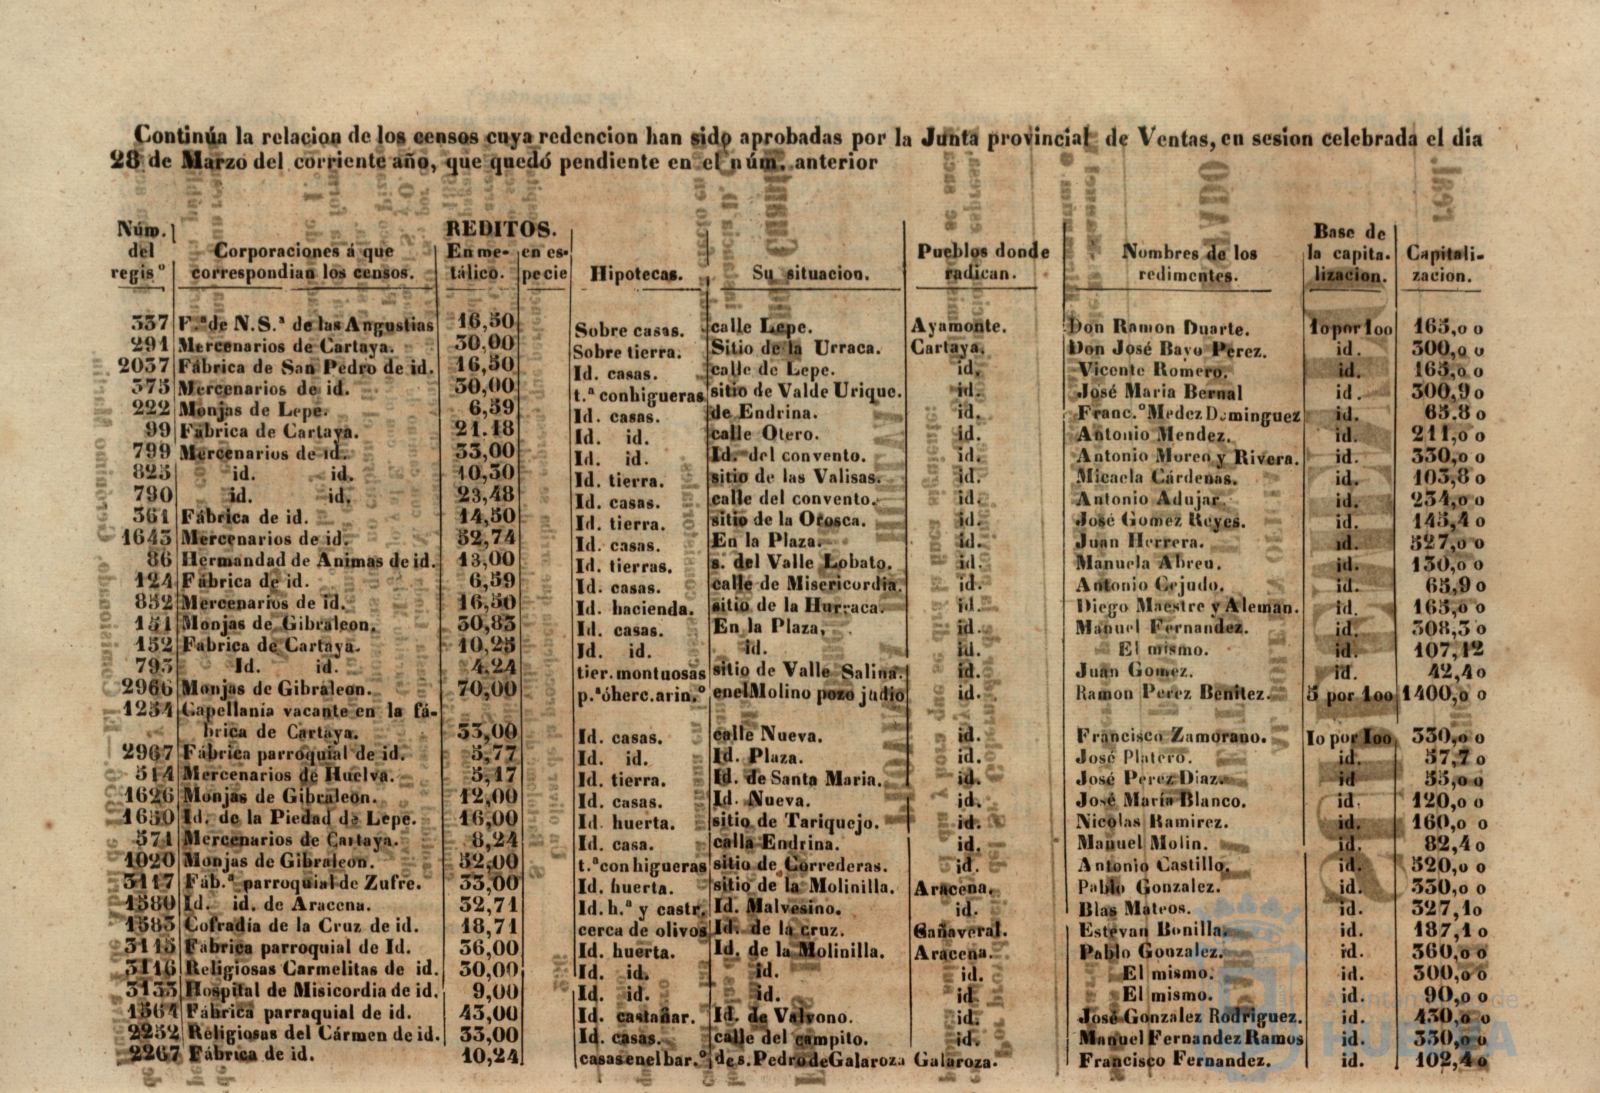 Continúa la relacion de los censos cuya redencion han sido aprobadas por la Junta provincial de Ventas, en sesion celebrada el dia
28 de Marzo del corriente año, que quedó pendiente en el núm. anterior
Núm. del regis.º | Corporaciones á que correspondian los censos. | REDITOS. En metálico. | en especie | Hipotecas. | Su situacion. | Pueblos donde radican. | Nombres de los redimentes. | Base de la capitalizacion. | Capitalizacion.
337 F.ª de N.S.ª de las Angustias 16,50 Sobre casas. calle Lepe. Ayamonte. Don Ramon Duarte. 10 por 100 165,00
291 Mercenarios de Cartaya. 30,00 Sobre tierra. Sitio de la Urraca. Cartaya. Don José Bayo Perez. id. 300,00
2037 Fábrica de San Pedro de id. 16,50 Id. casas. calle de Lepe. id. Vicente Romero. id. 165,00
373 Mercenarios de id. 30,00 t.ª con higueras sitio de Valde Urique. id. José Maria Bernal id. 300,90
222 Monjas de Lepe. 6,59 Id. casas. de Endrina. id. Franc.º Medez Dominguez id. 65.80
99 Fábrica de Cartaya. 21.18 Id. id. calle Otero. id. Antonio Mendez. id. 211,00
799 Mercenarios de id. 33,00 Id. id. Id. del convento. id. Antonio Moreo y Rivera. id. 330,00
825 id. id. 10,30 Id. tierra. sitio de las Valisas. id. Micaela Cárdenas. id. 103,80
790 id. id. 23,48 Id. casas. calle del convento. id. Antonio Adujar. id. 234,00
361 Fábrica de id. 14,50 Id. tierra. sitio de la Orosca. id. José Gomez Reyes. id. 145,40
1643 Mercenarios de id. 52,74 Id. casas. En la Plaza. id. Juan Herrera. id. 527,00
86 Hermandad de Animas de id. 13,00 Id. tierras. s. del Valle Lobato. id. Manuela Abreu. id. 130,00
124 Fábrica de id. 6,59 Id. casas. calle de Misericordia. id. Antonio Cejudo. id. 65,90
852 Mercenarios de id. 16,50 Id. hacienda. sitio de la Hurraca. id. Diego Maestre y Aleman. id. 165,00
151 Monjas de Gibraleon. 30,83 Id. casas. En la Plaza, id. Manuel Fernandez. id. 308,30
152 Fabrica de Cartaya. 10,25 Id. id. id. id. El mismo. id. 107,12
793 Id. id. 4.24 tier. montuosas sitio de Valle Salina. id. Juan Gomez. id. 42,40
2966 Monjas de Gibraleon. 70,00 p.ª óherc. arin.º en el Molino pozo judio id. Ramon Perez Benitez. 5 por 100 1400,00
1254 Capellanía vacante en la fá-
brica de Cartaya. 33,00 Id. casas. calle Nueva. id. Francisco Zamorano. 10 por 100 330,00
2967 Fábrica parroquial de id. 5,77 Id. id. Id. Plaza. id. José Platero. id. 57,70
514 Mercenarios de Huelva. 5,17 Id. tierra. Id. de Santa Maria. id. José Perez Diaz. id 55,00
1626 Monjas de Gibraleon. 12,00 Id. casas. Id. Nueva. id. José María Blanco. id. 120,00
1650 Id. de la Piedad de Lepe. 16,00 Id. huerta. sitio de Tariquejo. id. Nicolas Ramirez. id. 160,00
571 Mercenarios de Cartaya. 8,24 Id. casa. calla Endrina. id. Manuel Molin. id. 82,40
1020 Monjas de Gibraleon. 52,00 t.ª con higueras sitio de Correderas. id. Antonio Castillo. id. 520,00
3117 Fáb.ª parroquial de Zufre. 33,00 Id. huerta. sitio de la Molinilla. Aracena. Pablo Gonzalez. id. 330,00
1580 Id. id. de Aracena. 32,71 Id. h.ª y castr. Id. Malvesino. id. Blas Mateos. id. 327,10
1583 Cofradia de la Cruz de id. 18,71 cerca de olivos Id. de la cruz. Cañaveral. Estevan Bonilla. id. 187,10
3115 Fabrica parroquial de Id. 36,00 Id. huerta. Id. de la Molinilla. Aracena. Pablo Gonzalez. id. 360,00
3116 Religiosas Carmelitas de id. 30,00 Id. id. id. id. El mismo. id. 300,00
3133 Hospital de Misicordia de id. 9,00 Id. id. id. id. El mismo. id. 90,00
1564 Fábrica parraquial de id. 43,00 Id. castañar. Id. de Valvono. id. José Gonzalez Rodriguez. id. 430,00
2252 Religiosas del Cármen de id. 33,00 Id. casas. calle del campito. id. Manuel Fernandez Ramos id. 330,00
2267 Fábrica de id. 10,24 casas en el bar.º de s. Pedro de Galaroza Galaroza. Francisco Fernandez. id. 102,40
Ayuntamiento de
HUELVA